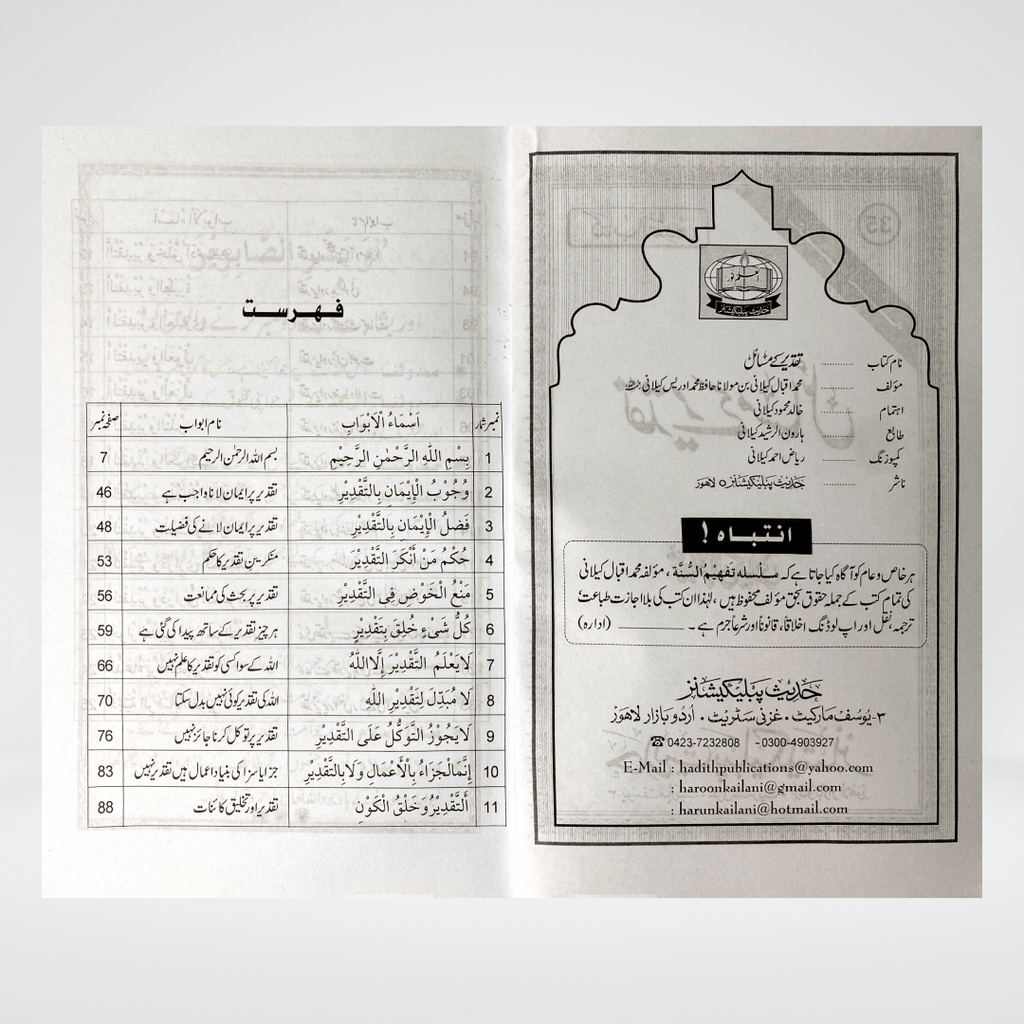 حدیث پبلیکیشنز
نام کتاب ........... تقدیر کے مسائل
مؤلف ........... محمد اقبال کیلانی بن مولانا حافظ محمد ادریس کیلانی
اہتمام ........... خالد محمود کیلانی
طابع ........... ہارون الرشید کیلانی
کمپوزنگ ........... ریاض احمد کیلانی
ناشر ........... حدیث پبلیکیشنز ○ لاہور
انتباہ !
ہر خاص و عام کو آگاہ کیا جاتا ہے کہ سلسله تفهیم السنة ، مؤلفہ محمد اقبال کیلانی
کی تمام کتب کے جملہ حقوق بحق مؤلف محفوظ ہیں ، لہٰذا ان کتب کی بلا اجازت طباعت ،
ترجمہ ، نقل اور اپ لوڈنگ اخلاقاً، قانوناً اور شرعاً جرم ہے ۔ ________ (ادارہ)
حدیث پبلیکیشنز
۳-یوسف مارکیٹ ، غزنی سٹریٹ ، اردو بازار لاہور
☎ 0423-7232808 -0300-4903927
E-Mail : hadithpublications@yahoo.com
: haroonkailani@gmail.com
: harunkailani@hotmail.com
فہرست
نمبر شمار اَسْمَاءُ الْاَبْوَابِ نام ابواب صفحہ نمبر
1 بِسْمِ اللّٰهِ الرَّحْمٰنِ الرَّحِيْمِ بسم اللہ الرحمٰن الرحیم 7
2 وُجُوْبُ الْإِيْمَانِ بِالتَّقْدِيْرِ تقدیر پر ایمان لانا واجب ہے 46
3 فَضْلُ الْإِيْمَانِ بِالتَّقْدِيْرِ تقدیر پر ایمان لانے کی فضیلت 48
4 حُكْمُ مَنْ أَنْكَرَ التَّقْدِيْرَ منکرینِ تقدیر کا حکم 53
5 مَنْعُ الْخَوْضِ فِى التَّقْدِيْرِ تقدیر پر بحث کی ممانعت 56
6 كُلُّ شَىْءٍ خُلِقَ بِتَقْدِيْرٍ ہر چیز تقدیر کے ساتھ پیدا کی گئی ہے 59
7 لَا يَعْلَمُ التَّقْدِيْرَ إِلَّا اللّٰهُ اللہ کے سوا کسی کو تقدیر کا علم نہیں 66
8 لَا مُبَدِّلَ لِتَقْدِيْرِ اللّٰهِ اللہ کی تقدیر کوئی نہیں بدل سکتا 70
9 لَا يَجُوْزُ التَّوَكُّلُ عَلَى التَّقْدِيْرِ تقدیر پر توکل کرنا جائز نہیں 76
10 إِنَّمَا الْجَزَاءُ بِالْأَعْمَالِ وَلَا بِالتَّقْدِيْرِ جزا یا سزا کی بنیاد اعمال ہیں تقدیر نہیں 83
11 اَلتَّقْدِيْرُ وَخَلْقُ الْكَوْنِ تقدیر اور تخلیق کائنات 88